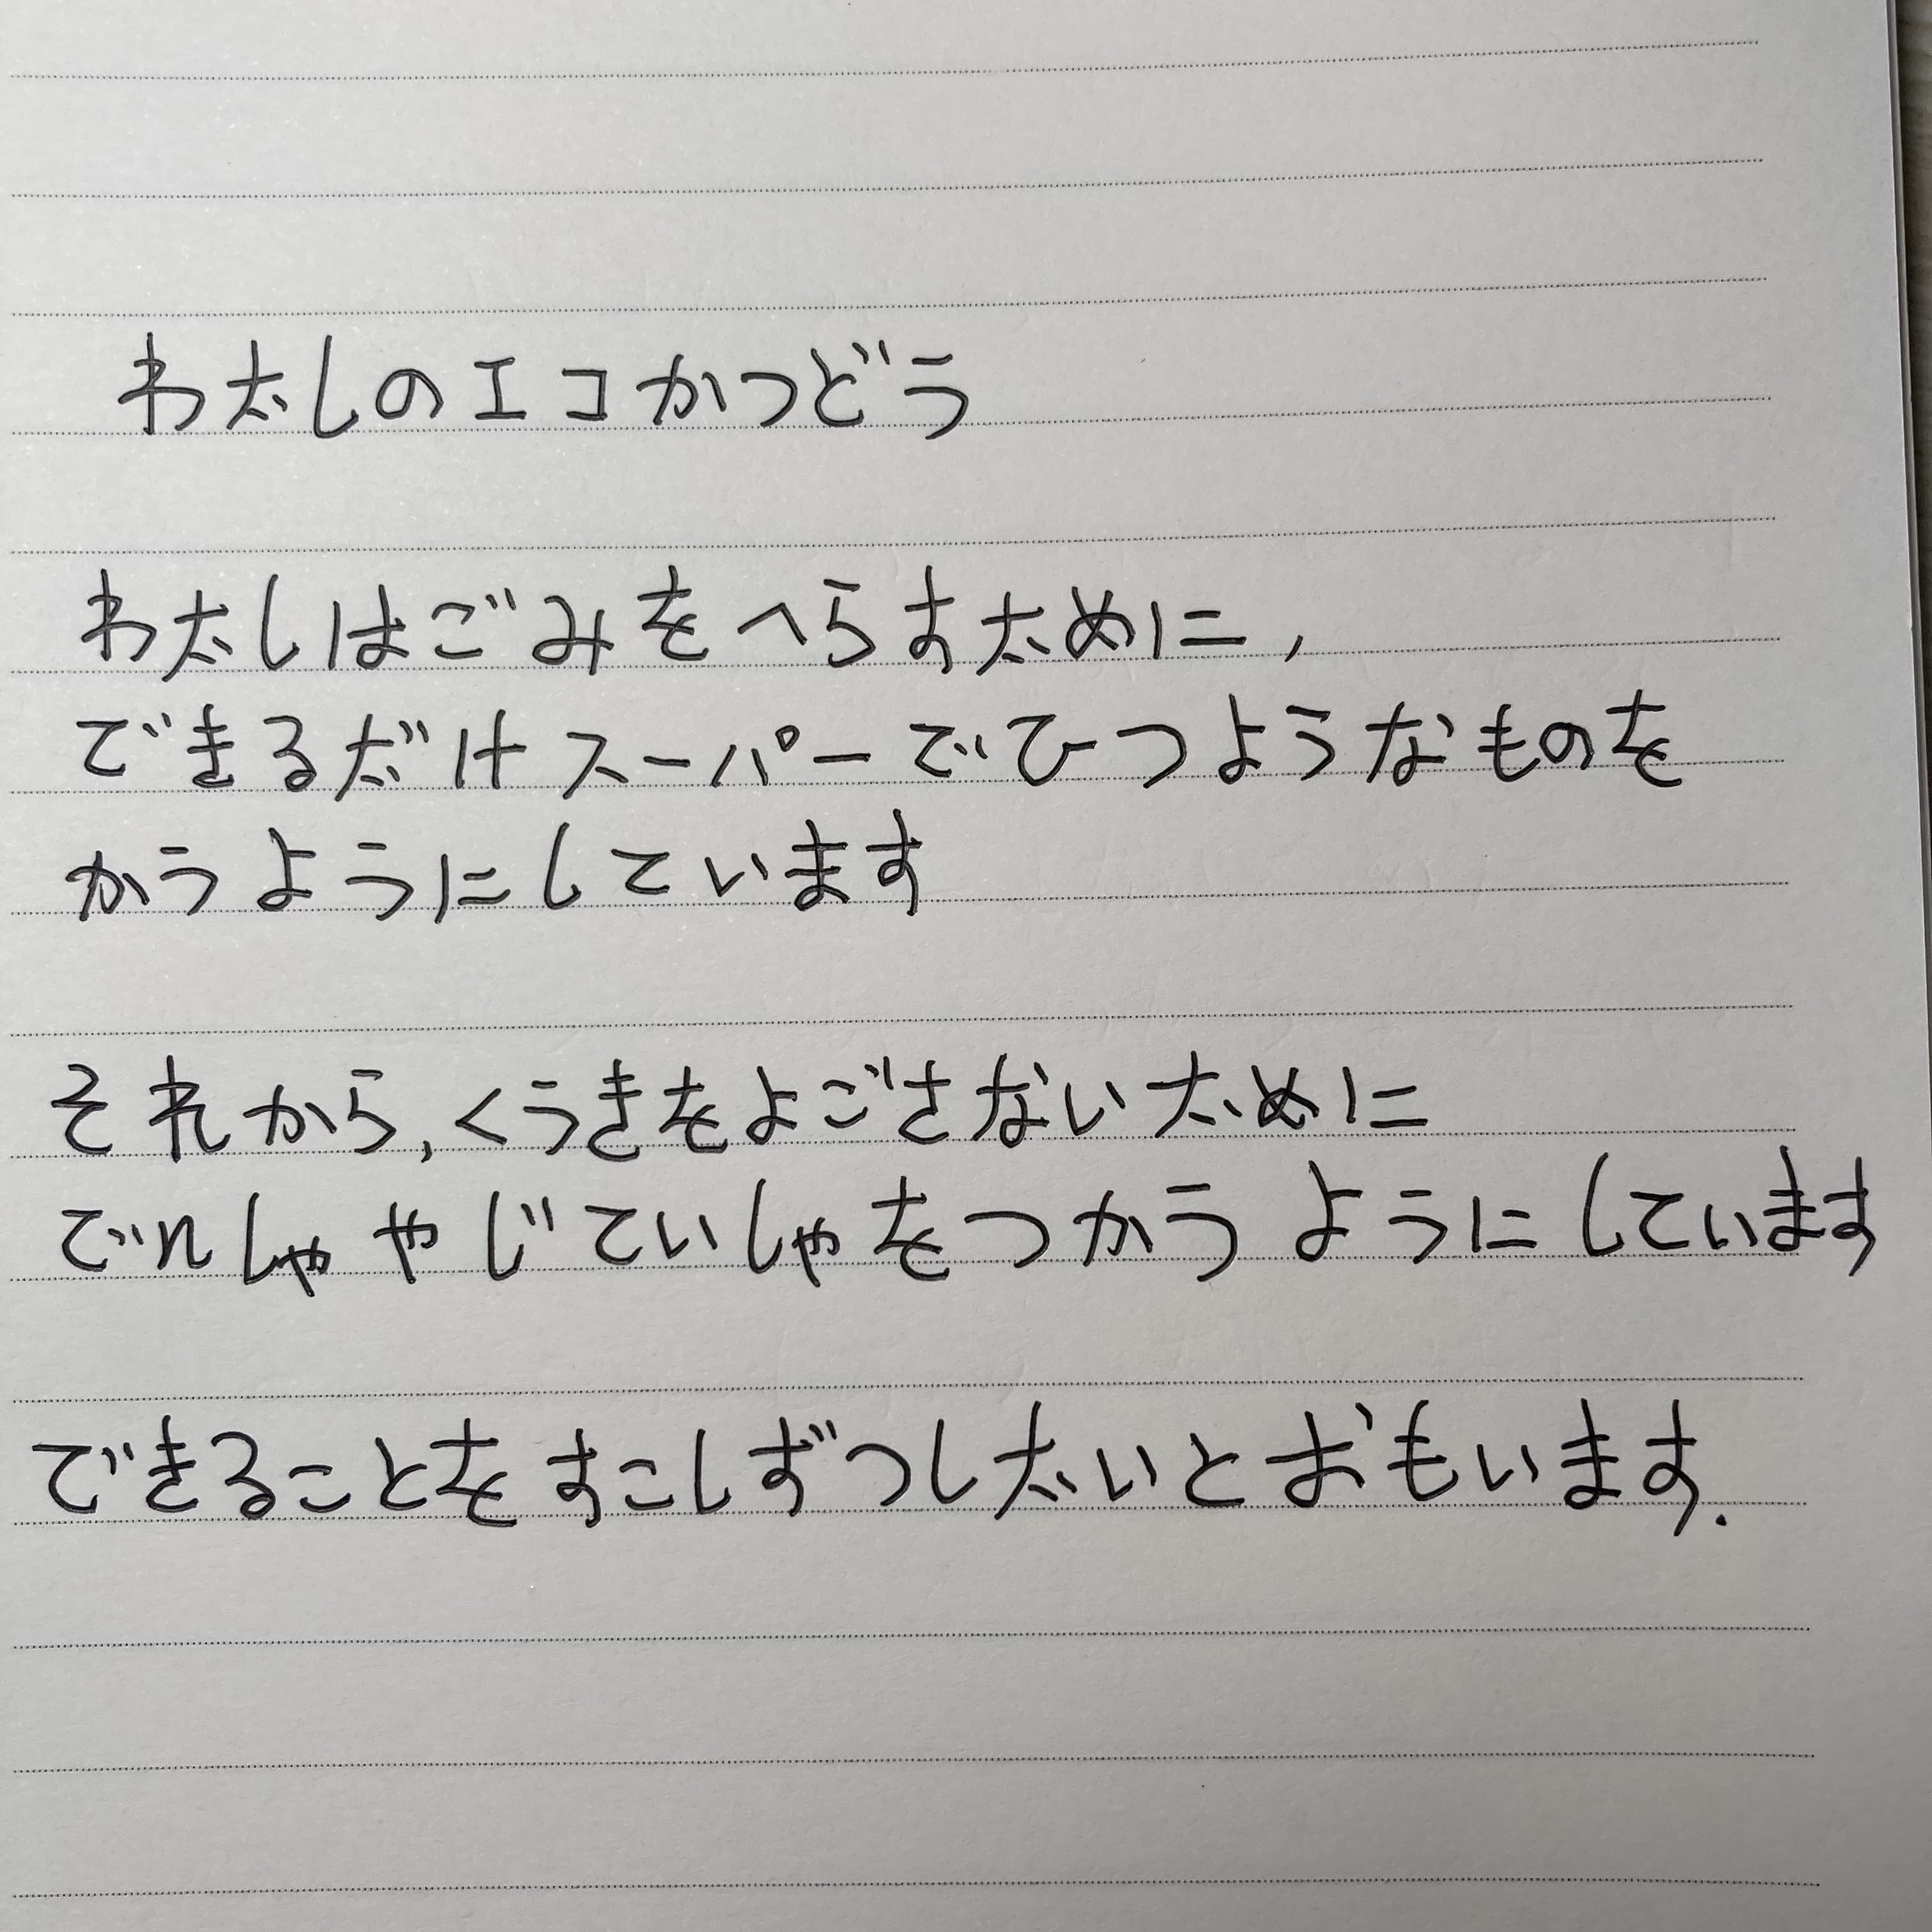 わたしのエコかつどう
わたしはごみをへらすために,
できるだけスーパーでひつようなものを
かうようにしています
それから,くうきをよごさないために
でんしゃやじていしゃをつかうようにしています
できることをすこしずつしたいとおもいます.